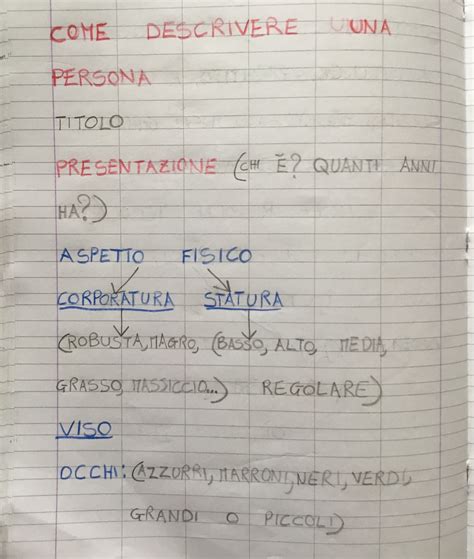 COME DESCRIVERE UNA
PERSONA
TITOLO
PRESENTAZIONE (CHI È? QUANTI ANNI
HA?)
ASPETTO FISICO
CORPORATURA STATURA
(ROBUSTA, MAGRO, (BASSO, ALTO, MEDIA,
GRASSO, MASSICCIO...) REGOLARE)
VISO
OCCHI: (AZZORRI, MARRONI, NERI, VERDI,
GRANDI O PICCOLI)